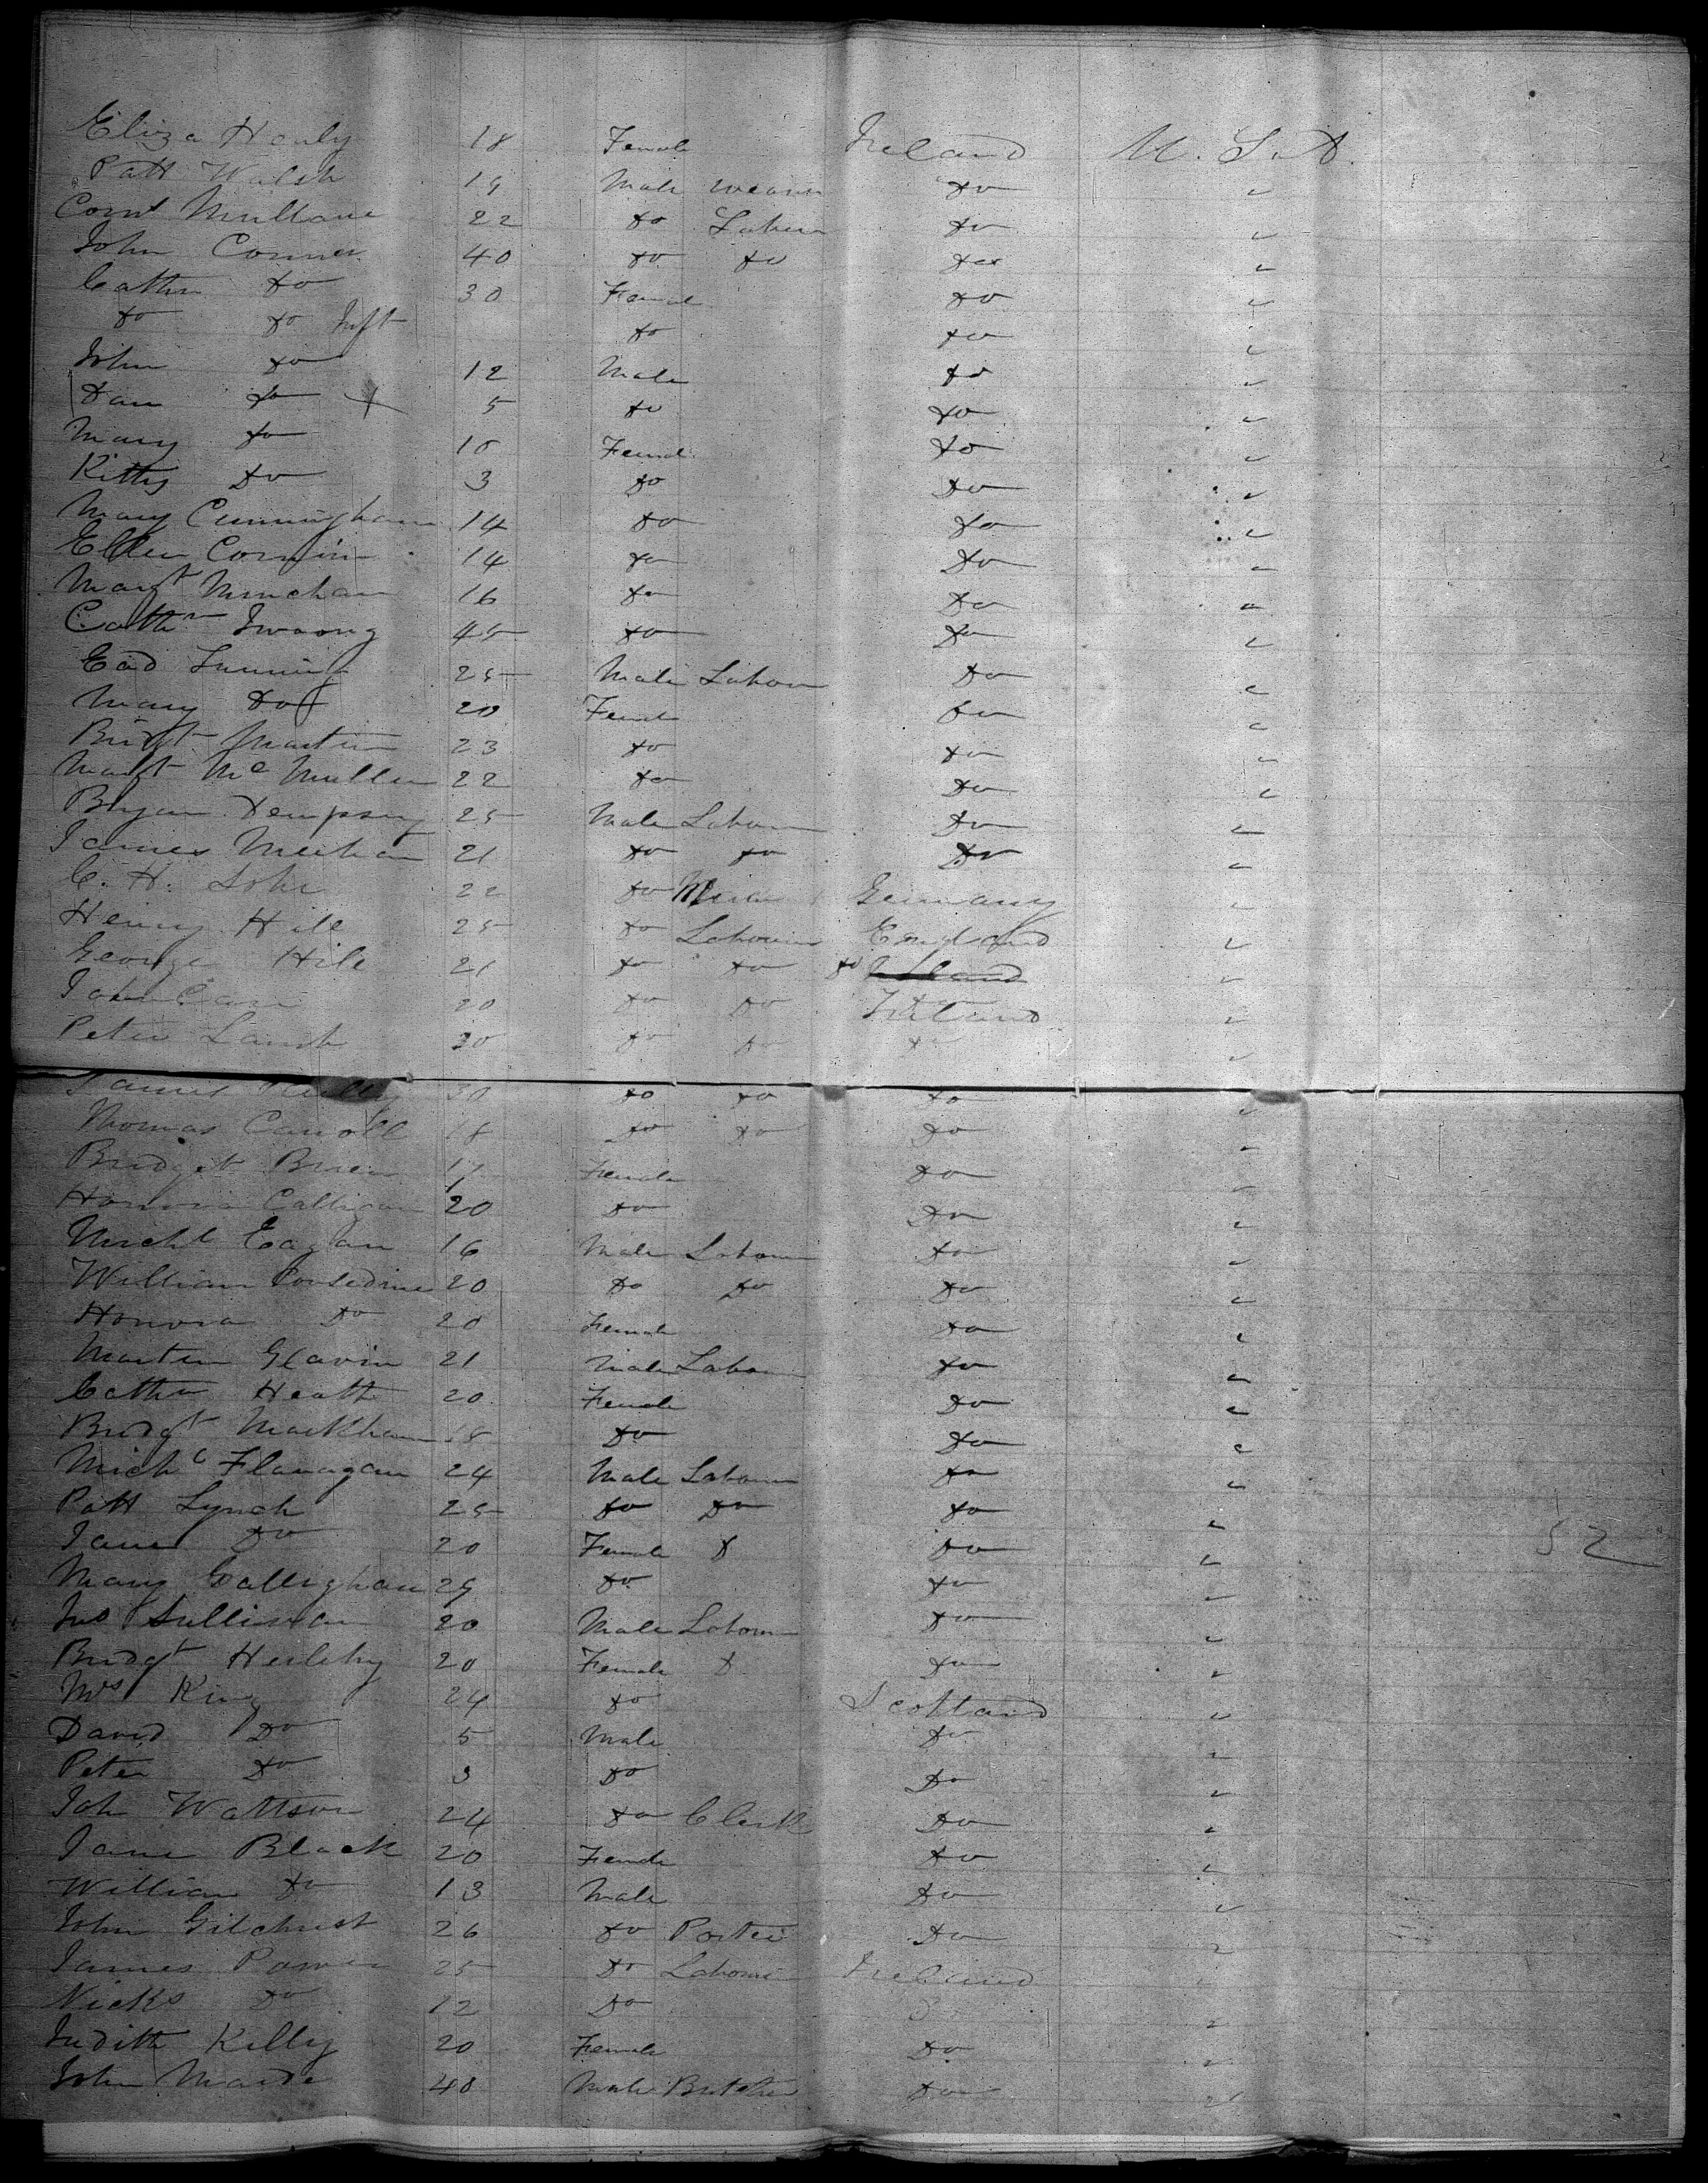 Eliza Healy 18 Female Ireland U.S.A.
Patt Walsh 19 Male weaver Do
Corns Mullane 22 Do Labour Do
John Conner 40 Do Do Do
Cathn Do 30 Female Do
Do Do Inft Do Do
John Do 12 Male Do
Dan Do + 5 Do Do
Mary Do 10 Female Do
Kitty Do 3 Do Do
Mary Cunningham 14 Do Do
Ellen 14 Do Do
Margt 16 Do Do
Cathn 45 Do Do
Edd 25 Male Labour Do
Mary Do 20 Female Do
Bridgt Martin 23 Do Do
Margt McMullen 22 Do Do
Bryan Dempsey 25 Male Labour Do
James Meehan 21 Do Do Do
C. H. 22 Do Germany
Henry Hill 25 Do Labourer England
George Hill 21 Do Do Do
John 20 Do Do Ireland
Peter Lamb 30 Do Do Do
30 Do Do Do
Thomas Carroll 18 Do Do Do
Bridget Brien 17 Female Do
Honora Calligan 20 Do Do
Michl Eagan 16 Male Labour Do
William Considine 20 Do Do Do
Honora Do 20 Female Do
Martin Glavin 21 Male Labour Do
Cathn Heath 20 Female Do
Bridgt Markham 18 Do Do
Michl Flanagan 24 Male Labour Do
Patt Lynch 25 Do Do Do
Jane Do 20 Female D Do 52
Mary Gallighan 25 Do Do
Jno Sullivan 20 Male Labour Do
Bridgt Herlihy 20 Female D Do
Mrs King 24 Do Scotland
David Do 5 Male Do
Peter Do 3 Do Do
Joh Wattson 24 Do Clerk Do
Jane Black 20 Female Do
William Do 13 Male Do
John Gilchrist 26 Do Porter Do
James Power 25 Do Labourer Ireland
Nicks Do 12 Do
Judith Kelly 20 Female Do
John 40 Male Butcher Do